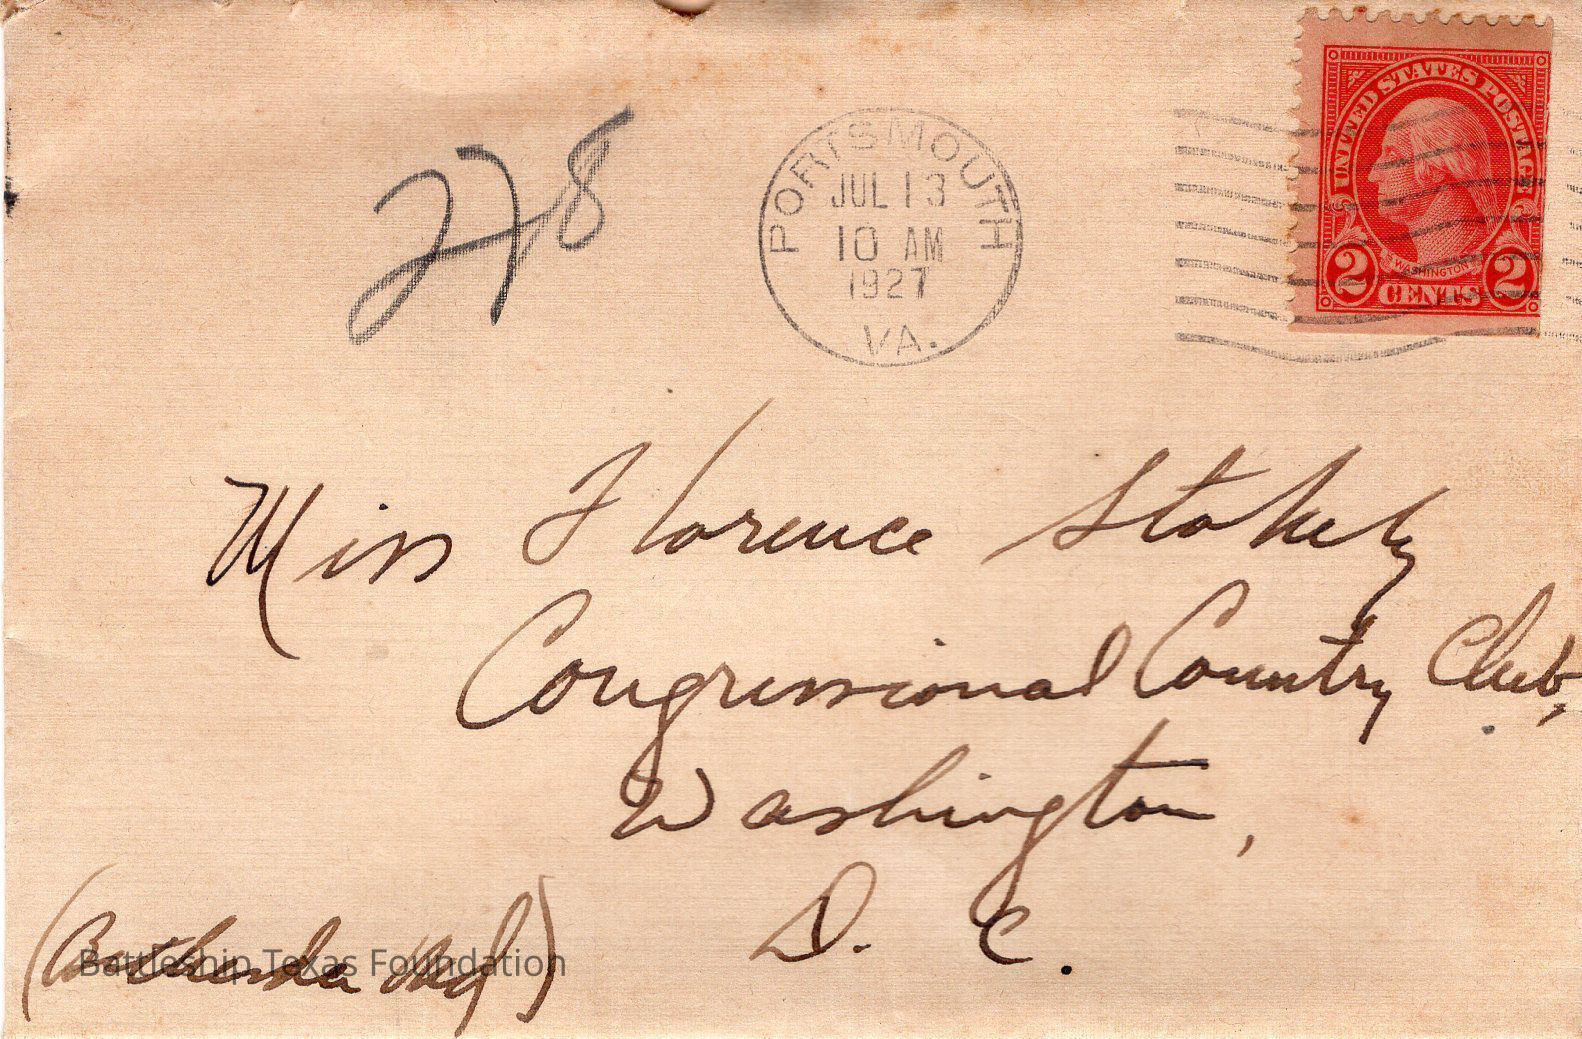 228
PORTSMOUTH
JUL 13
10 AM
1927
VA.
UNITED STATES POSTAGE
WASHINGTON
2 CENTS 2
Miss Florence Stokely
Congressional Country Club,
Washington,
D. C.
(Bethesda Md)
Battleship Texas Foundation